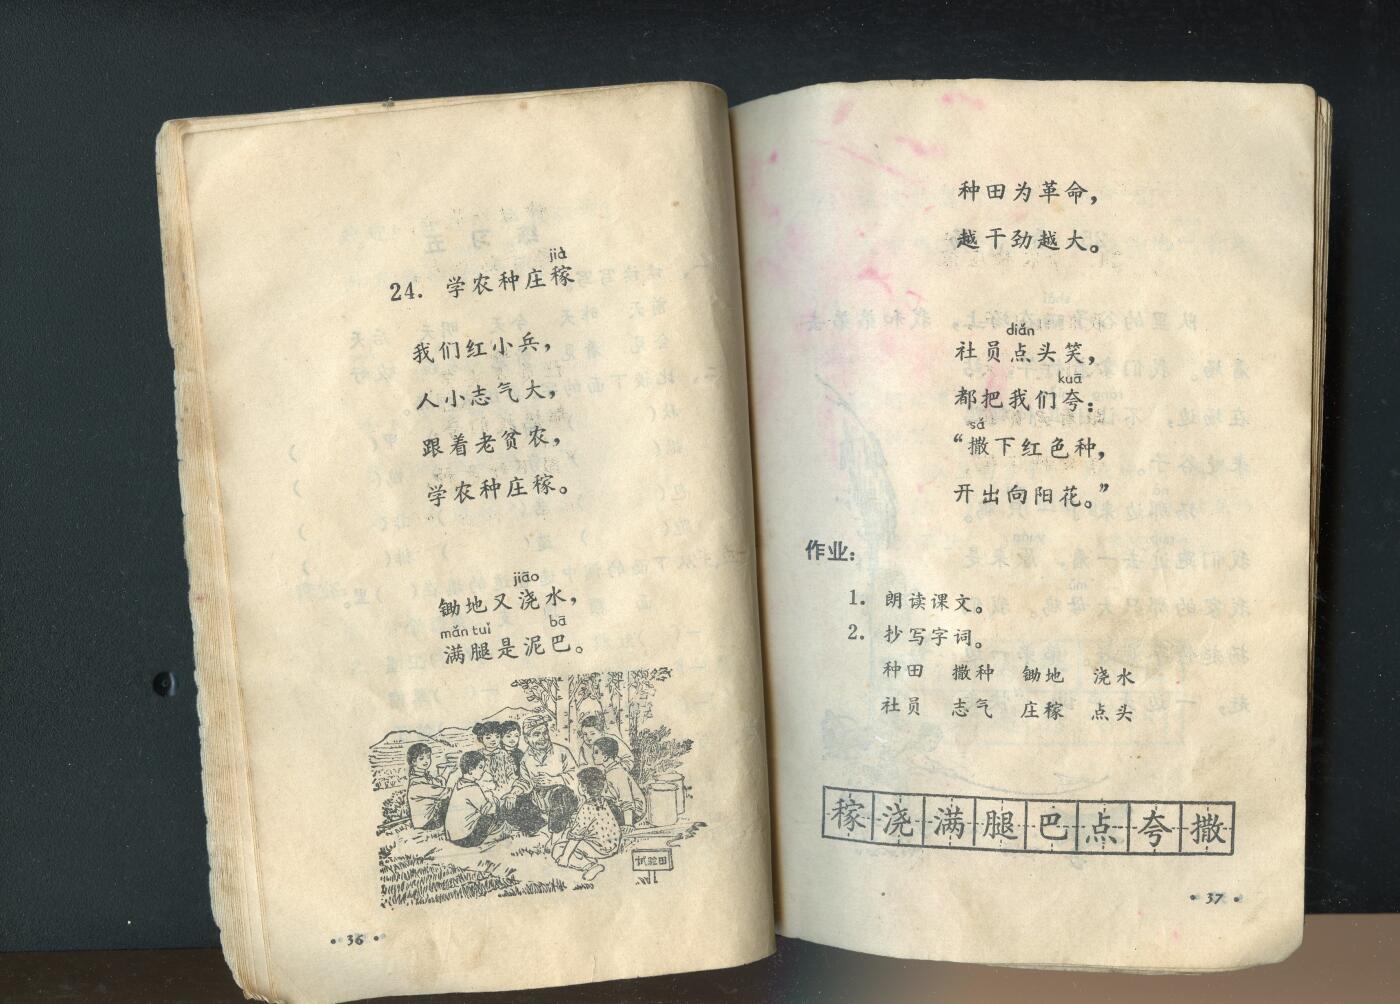 jià
24. 学农种庄稼
我们红小兵，
人小志气大，
跟着老贫农，
学农种庄稼。
jiāo
锄地又浇水，
mǎn tuǐ bā
满腿是泥巴。
试验田
• 36 •
种田为革命，
越干劲越大。
diǎn
社员点头笑，
kuā
都把我们夸：
sǎ
“撒下红色种，
开出向阳花。”
作业：
1. 朗读课文。
2. 抄写字词。
种田 撒种 锄地 浇水
社员 志气 庄稼 点头
稼浇满腿巴点夸撒
• 37 •